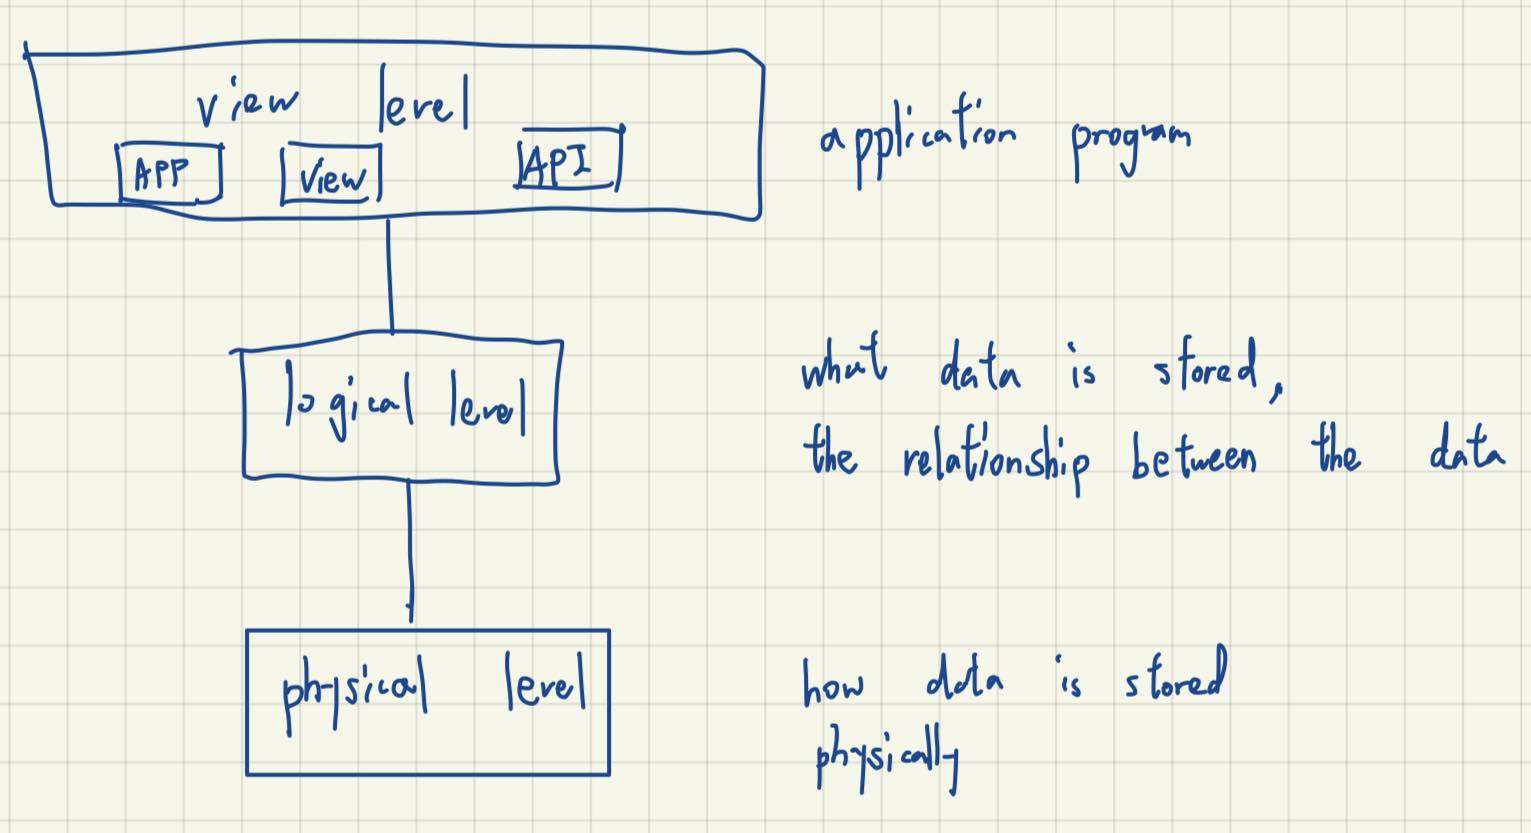 view level
APP
View
API
application program
logical level
what data is stored,
the relationship between the data
physical level
how data is stored
physically